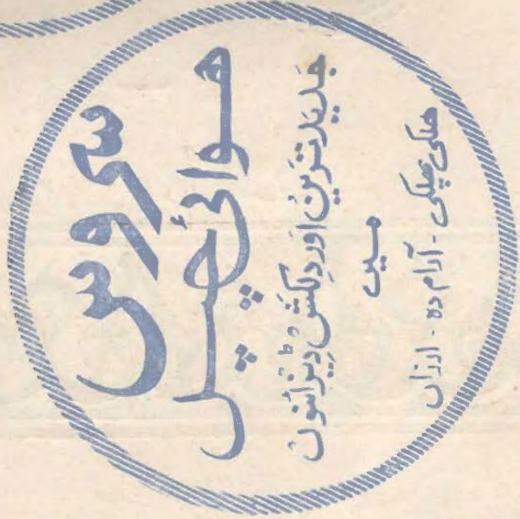 سروس
ہوائی چپل
جدید ترین اور دلکش ڈیزائنوں
میں
ہلکی پھلکی - آرام دہ - ارزاں